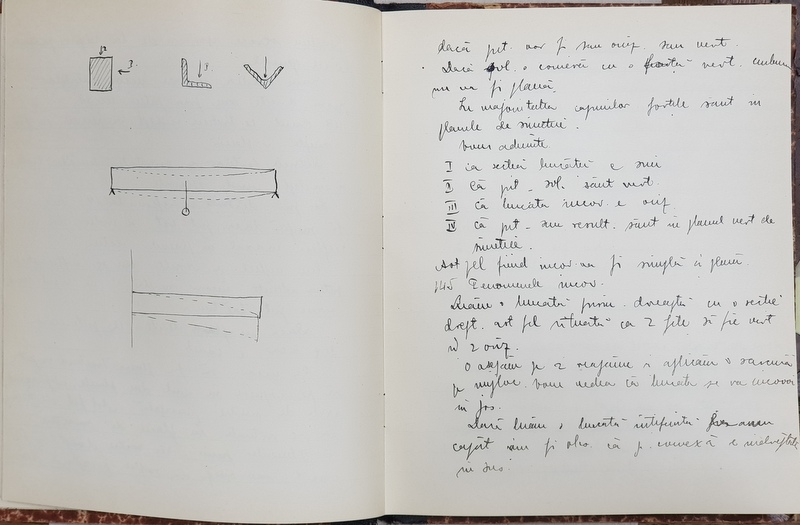 P
dacă pct. vor f sau oriz. sau vert.
Dacă sol. o comeră cu o vert.
nu va fi plană
În majoritatea cazurilor forțele sunt în
planele de simetrie.
Vom admite
I că secția bucății e sim
II Că pct _ sol. sânt vert.
III că bucata incov. e oriz
IV că pct _ sau result. sânt în planul vert de
simetrie.
Ast fel fiind incov. va fi simplă și plană.
145 Fenomenele incov.
Luăm o bucată prism. dreaptă cu o secție
drept. ast fel situată ca 2 fețe să fie vert
și 2 oriz.
O așezăm pe 2 reazăme și aplicăm o sarcină
pe mijloc. vom vedea că bucata se va incovoi
în jos.
Dacă luăm o bucată înțepenită
capăt am fi obs. că p. convexă e îndreptată
în sus.